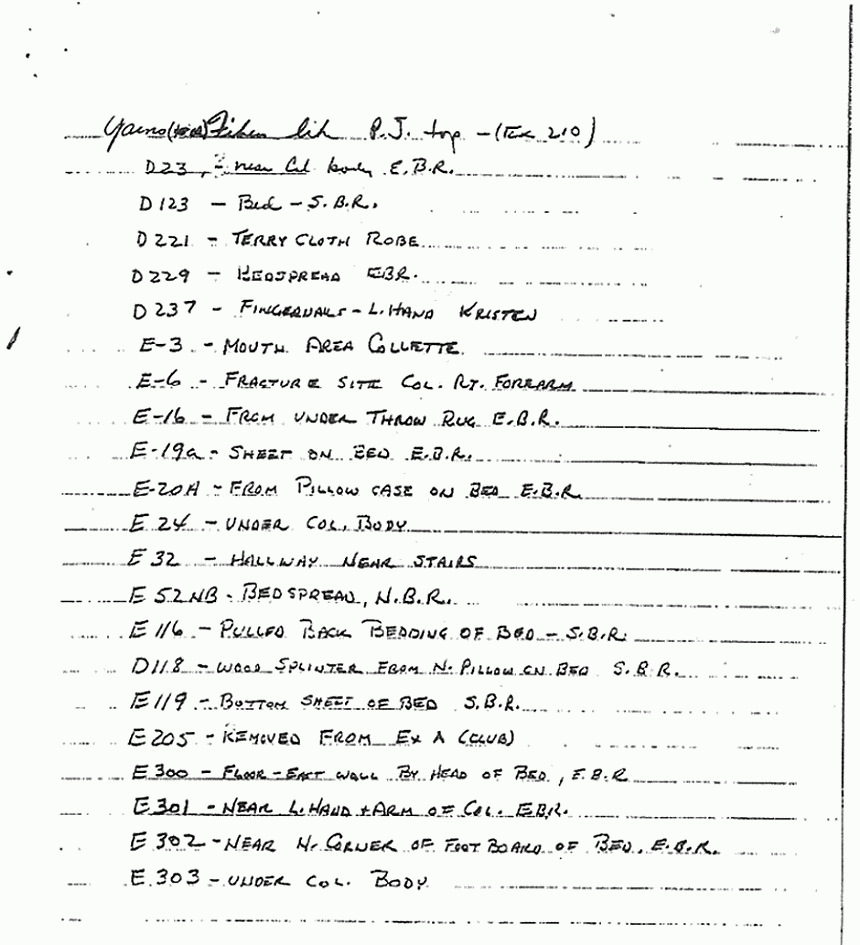 Yarns Fibers like P.J. top - (Ex 210)
D23, - near Col body E.B.R.
D123 - Bed - S.B.R.
D221 - TERRY CLOTH ROBE
D229 - BEDSPREAD EBR.
D237 - FINGERNAILS - L. HAND KRISTEN
E-3 - MOUTH AREA COLLETTE
E-6 - FRACTURE SITE COL. RT. FOREARM
E-16 - FROM UNDER THROW RUG E.B.R.
E-19a - SHEET ON BED E.B.R.
E-20A - FROM PILLOW CASE ON BED E.B.R.
E 24 - UNDER COL. BODY
E 32 - HALLWAY NEAR STAIRS
E 52NB - BEDSPREAD, N.B.R.
E 116 - PULLED BACK BEDDING OF BED - S.B.R.
D118 - WOOD SPLINTER FROM N. PILLOW ON BED S.B.R.
E119 - BOTTOM SHEET OF BED S.B.R.
E205 - REMOVED FROM EX A (CLUB)
E300 - FLOOR - EAST WALL BY HEAD OF BED, E.B.R
E301 - NEAR L. HAND + ARM OF COL. EBR.
E 302 - NEAR N. CORNER OF FOOT BOARD OF BED, E.B.R.
E.303 - UNDER COL. BODY